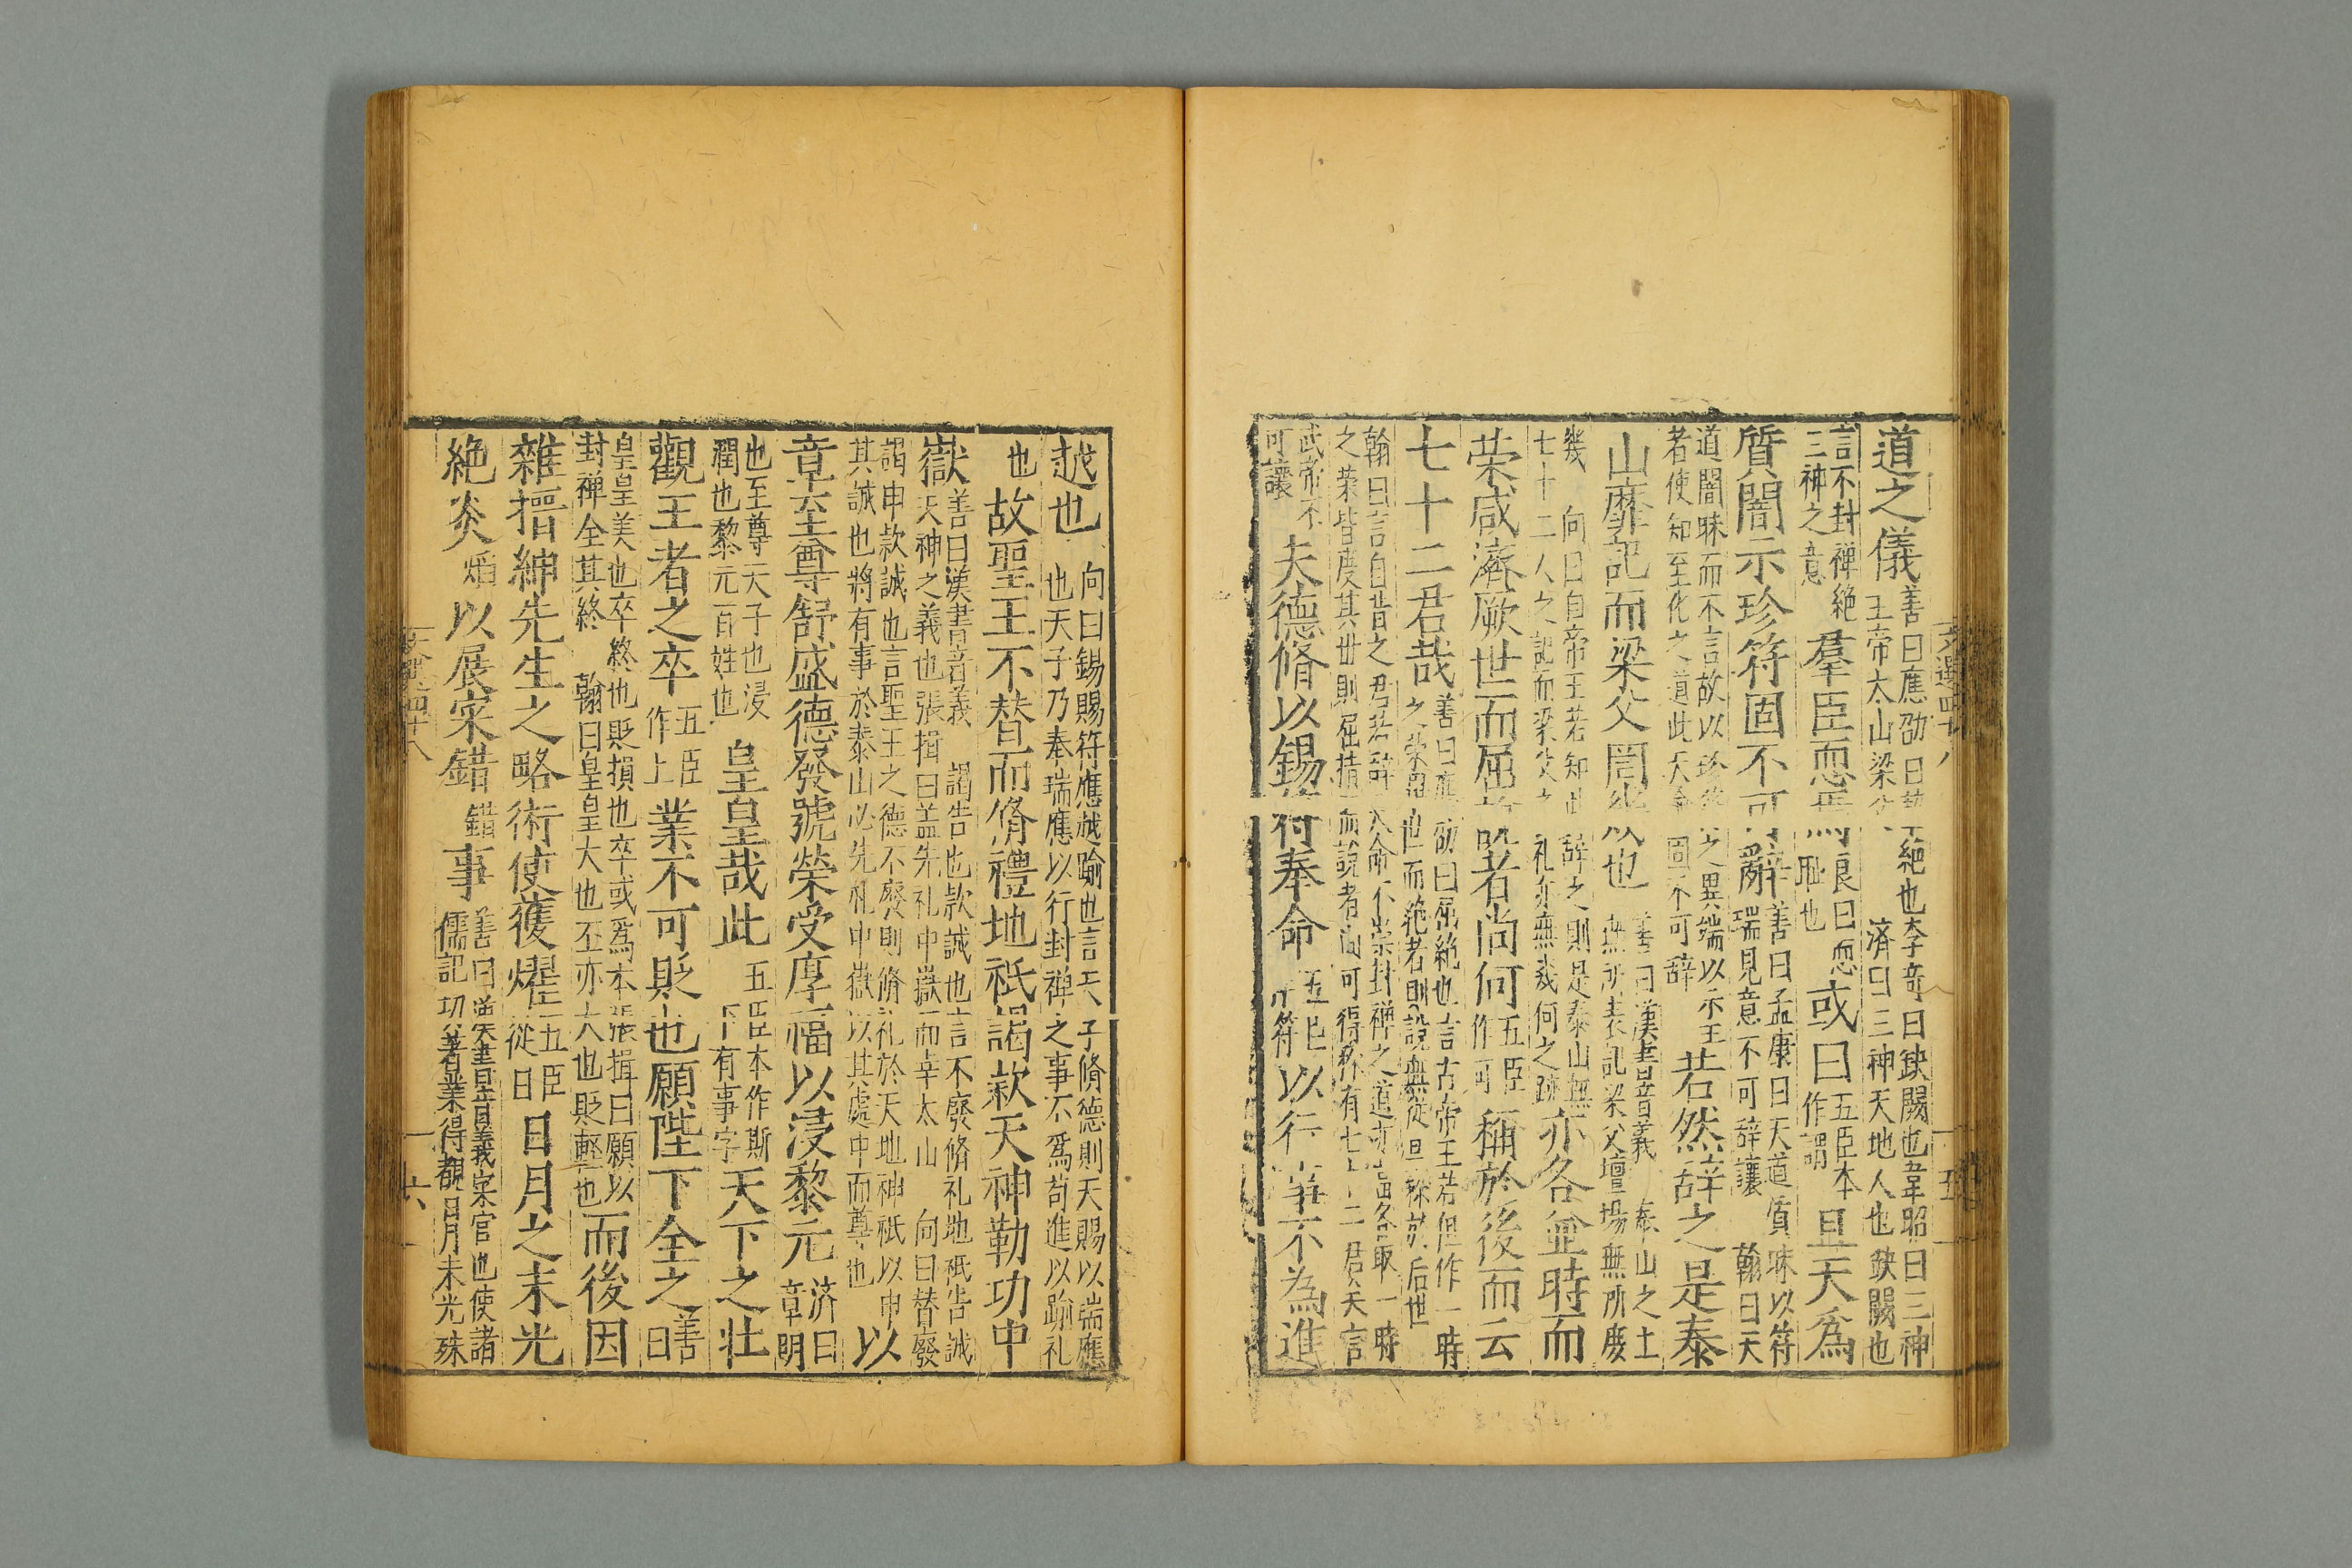 道之儀善曰應劭曰缺絶也李奇曰缺闕也韋昭曰三神王帝太山梁父濟曰三神天地人也缺闕也
言不封禪絶三神之意羣臣恧焉良曰恧耻也或曰五臣本作謂且天爲
質闇示珍符固不可辭善曰孟康曰天道質昧以符瑞見意不可辭讓翰曰天
道闇昧而不言故以珍符之異端以示王者使知至化之道此天命固不可辭若然辭之是泰
山靡記而梁父罔幾也善曰漢書音義泰山之上無所表記梁父壇場無所庱
幾向曰自帝王若知此辭之則是泰山無七十二人之記而梁父之礼亦無幾何之跡亦各並時而
荣咸濟厥世而屈說者尚何五臣作可稱於後而云
七十二君哉善曰應劭曰屈絶也言古帝王若但作一時之榮畢世而絶者則說無從显稱於后世
翰曰言自昔之君若辭天命不崇封禪之道亦當各取一時之荣皆度其世則屈措而說者尚可得称有七十二君矣言
武帝不可讓夫德脩以錫符奉命五臣作符以行事不為進
越也向曰錫賜符應越踰也言天子脩德則天賜以端應也天子乃奉瑞應以行封禅之事不爲苟進以踰礼
也故聖王不替而脩禮地祇謁欵天神勒功中
嶽善曰漢書音義謁告也欵誠也言不廢脩礼地祇告誠天神之義也張揖曰盖先礼中嶽而幸太山向曰替廢
謁申款誠也言聖王之德不廢則脩礼於天地神祇以申其誠也將有事於泰山必先札中嶽以其處中而尊也以
章至尊舒盛德發號榮受厚福以浸黎元济曰章明
也至尊天子也浸潤也黎元百姓也皇皇哉此五臣本作斯下有事字天下之壮
觀王者之卒五臣作上業不可貶也願陛下全之善曰
皇皇美也卒終也貶損也卒或爲本張揖曰願以封禅全其終翰曰皇皇大也丕亦大也貶輕也而後因
雜搢紳先生之略術使獲燿五臣從日日月之末光
絶炎熖以展寀錯錯事善曰漢書音義寀官也使諸儒記功著業得覩日月末光殊
文選四十八
五
文選四十八
六